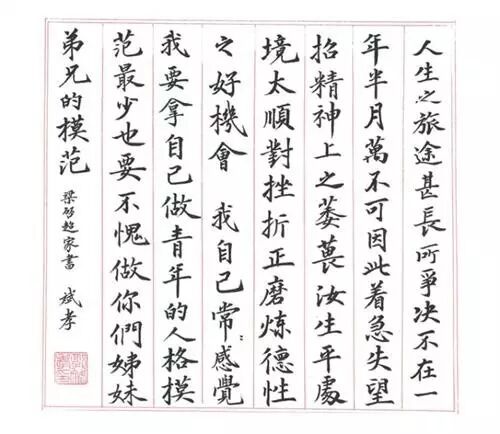 人生之旅途甚長所爭决不在一
年半月萬不可因此着急失望
招精神上之萎葨汝生平處
境太順對挫折正磨煉德性
之好機會 我自己常感覺
我要拿自己做青年的人格模
范最少也要不愧做你們姊妹
弟兄的模范
梁启超家書 斌孝